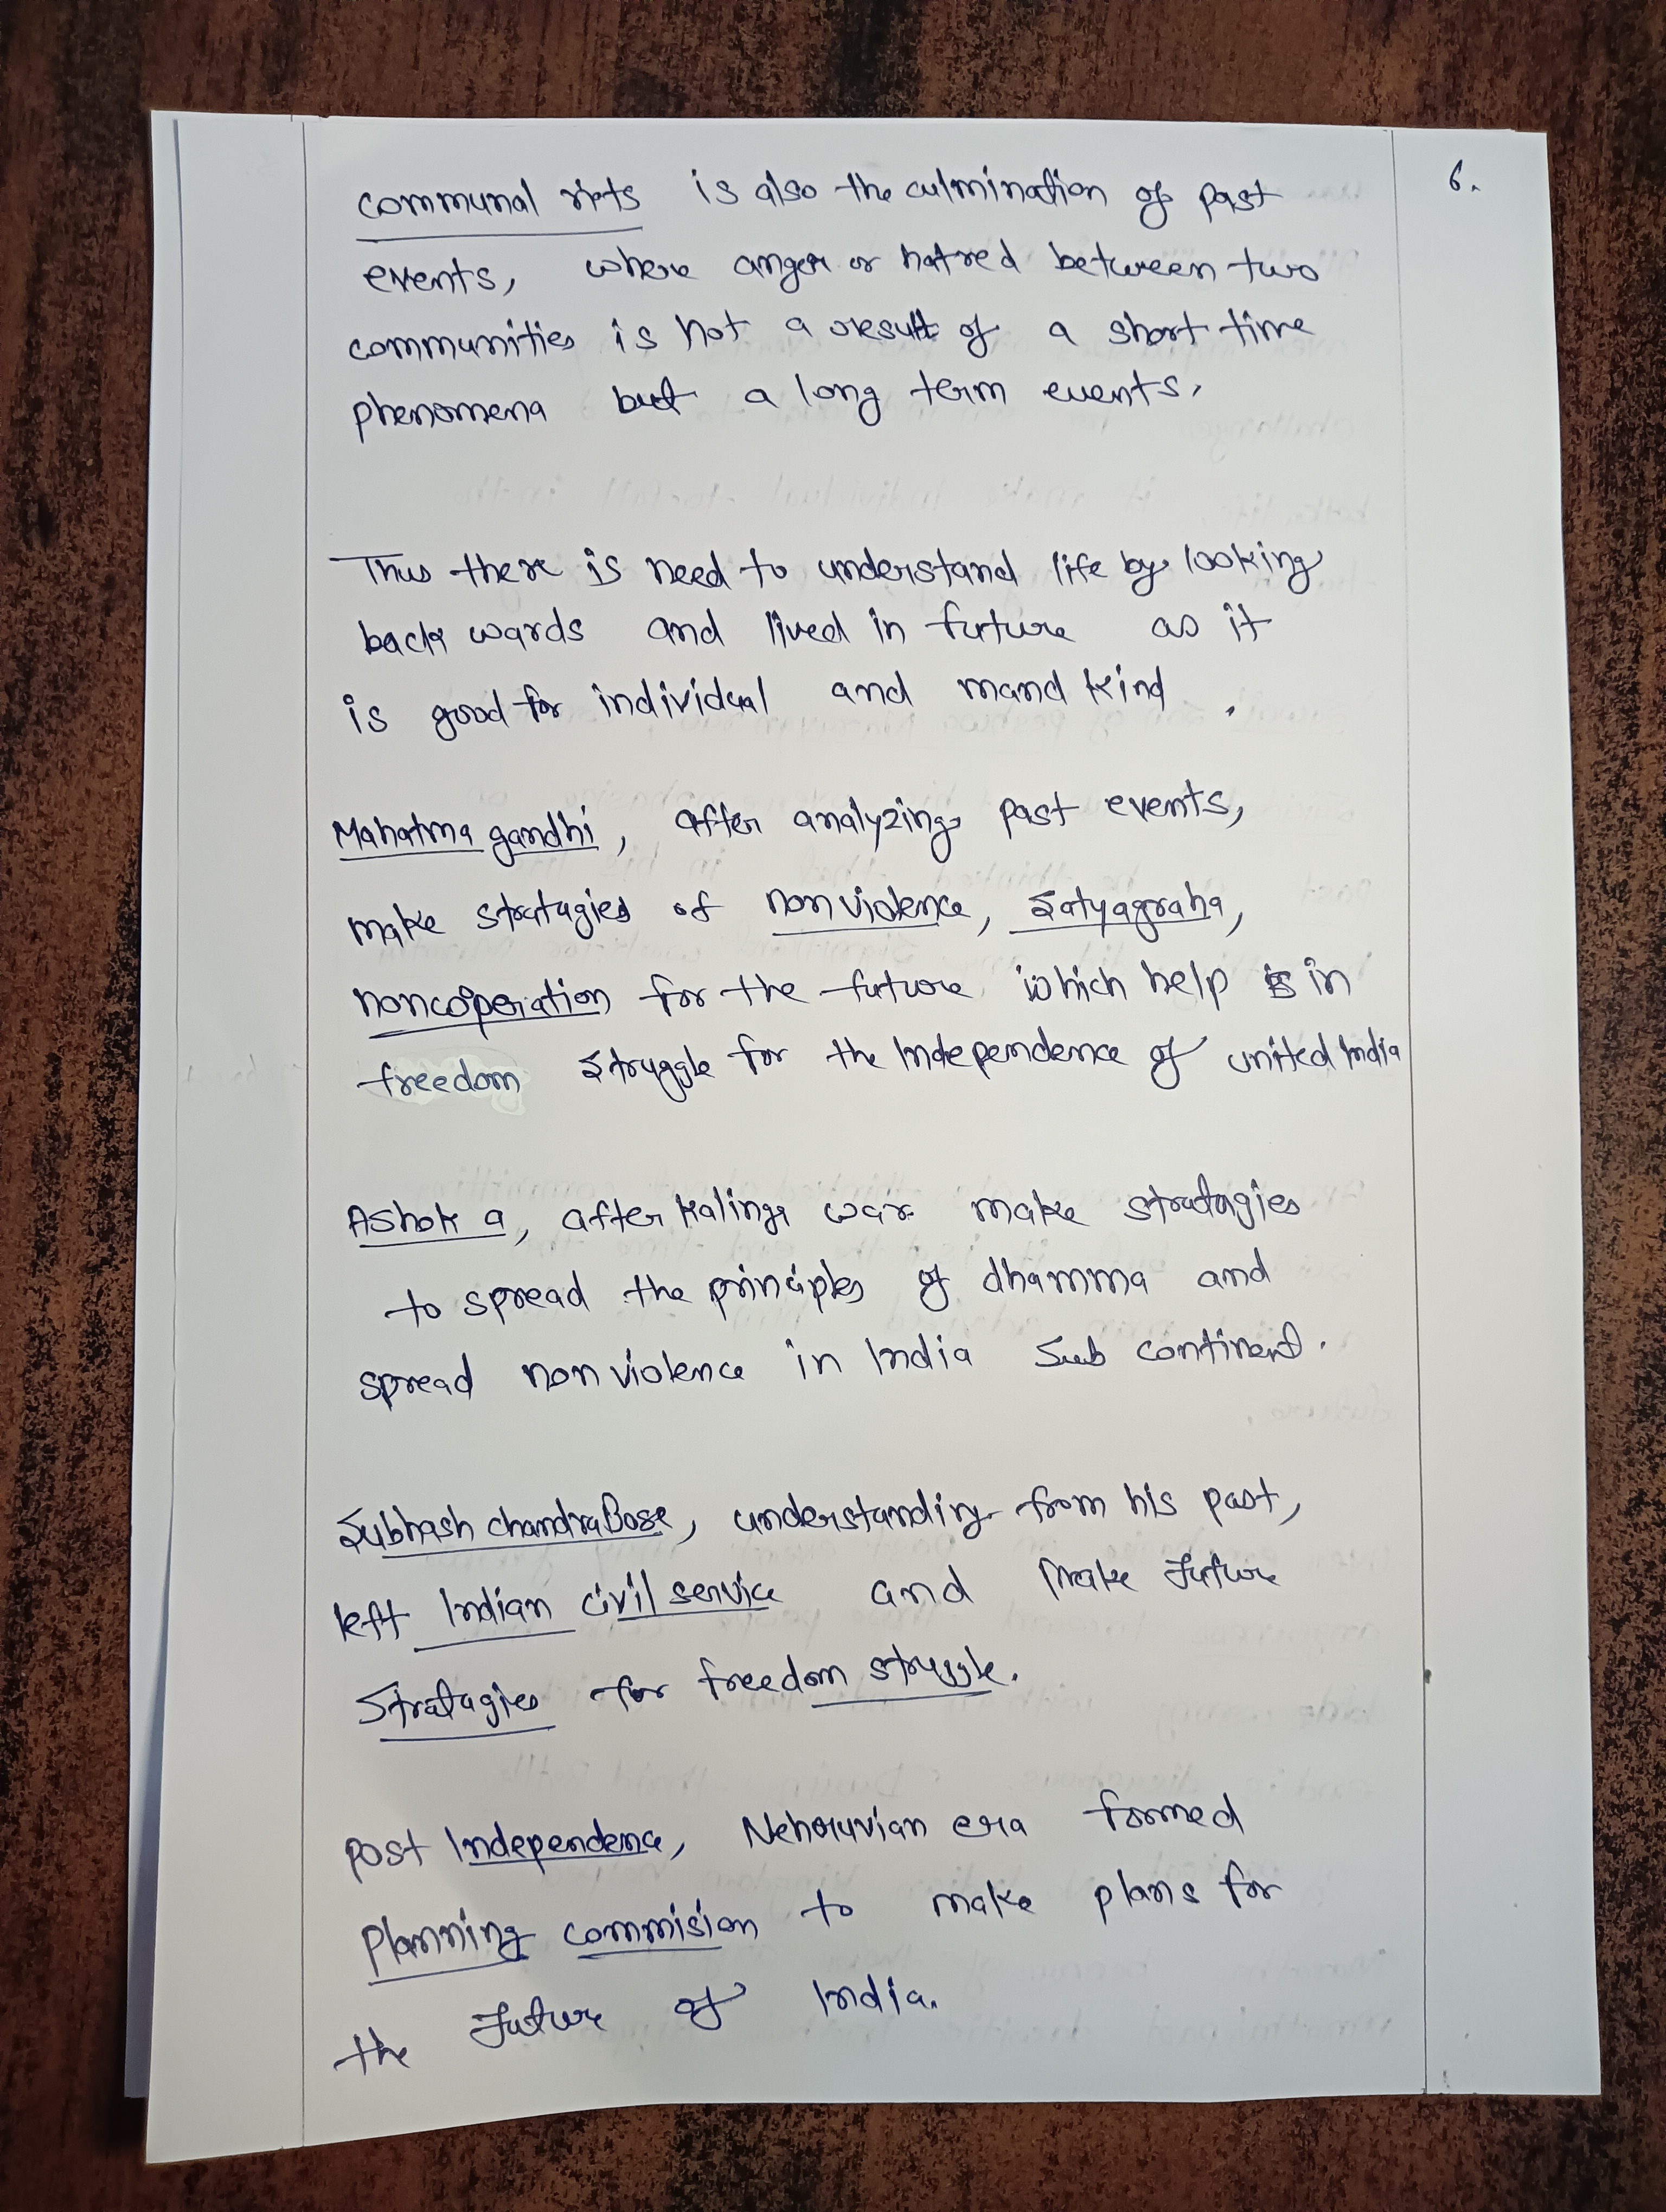 6.
communal riots is also the culmination of past
events, where anger or hatred between two
communities is not a result of a short time
phenomena but a long term events.
Thus there is need to understand life by looking
back wards and lived in future as it
is good for individual and mand kind.
Mahatma gandhi, after analyzing past events,
make stratagies of non violence, Satyagraha,
noncoperation for the future which help in
freedom struggle for the Independence of united India
Ashok a, after kalinga war make stratagies
to spread the principles of dhamma and
spread non violence in India Sub continent.
Subhash chandra Bose, understanding from his past,
left Indian civil service and make future
Stratagies for freedom struggle.
post Independence, Nehruvian era formed
planning commision to make plans for
the future of India.